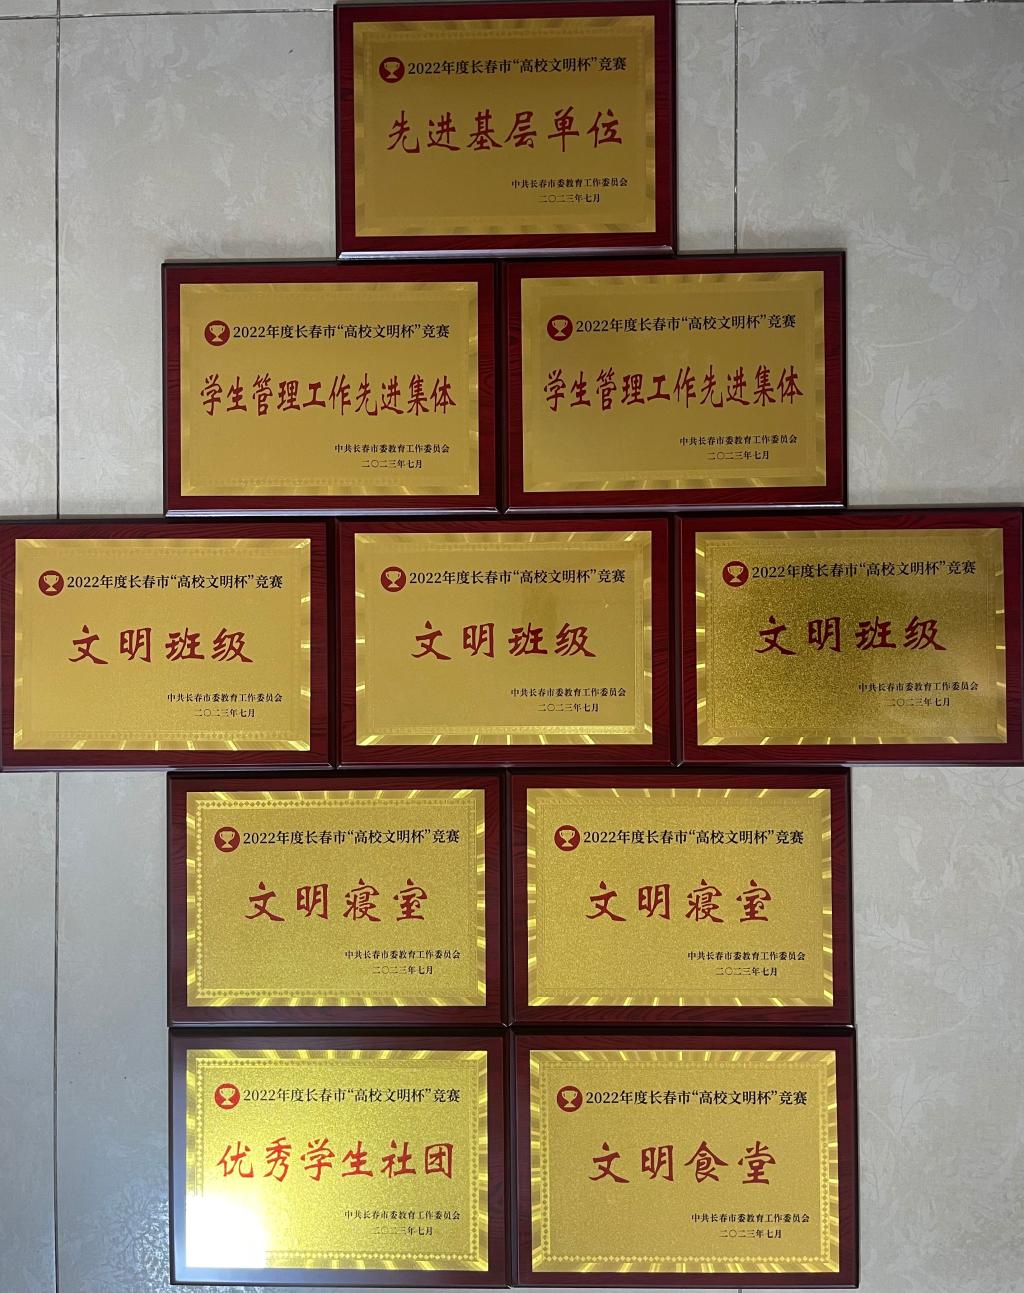 2022年度长春市“高校文明杯”竞赛
先进基层单位
中共长春市委教育工作委员会
二〇二三年七月
2022年度长春市“高校文明杯”竞赛
学生管理工作先进集体
中共长春市委教育工作委员会
二〇二三年七月
2022年度长春市“高校文明杯”竞赛
学生管理工作先进集体
中共长春市委教育工作委员会
二〇二三年七月
2022年度长春市“高校文明杯”竞赛
文明班级
中共长春市委教育工作委员会
二〇二三年七月
2022年度长春市“高校文明杯”竞赛
文明班级
中共长春市委教育工作委员会
二〇二三年七月
2022年度长春市“高校文明杯”竞赛
文明班级
中共长春市委教育工作委员会
二〇二三年七月
2022年度长春市“高校文明杯”竞赛
文明寝室
中共长春市委教育工作委员会
二〇二三年七月
2022年度长春市“高校文明杯”竞赛
文明寝室
中共长春市委教育工作委员会
二〇二三年七月
2022年度长春市“高校文明杯”竞赛
优秀学生社团
中共长春市委教育工作委员会
二〇二三年七月
2022年度长春市“高校文明杯”竞赛
文明食堂
中共长春市委教育工作委员会
二〇二三年七月